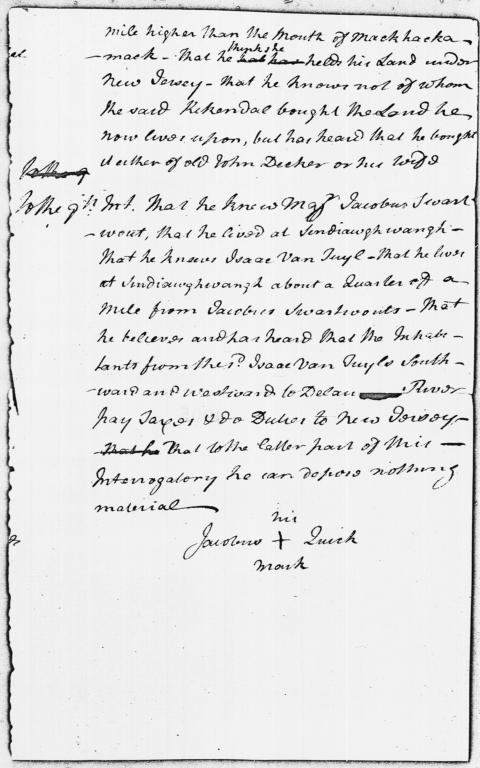 mile higher than the Mouth of Mackhacka-
-mack - that he thinks he holds his Land under
New Jersey - that he knows not of whom
the said Kikendal bought the Land he
now lives upon, but has heard that he bought
it either of old John Decker or his wife
To the 9
To the 9th Int. that he knew Majr Jacobus Swart-
-wout, that he lived at Sindiawghwangh -
that he knows Isaac Van Tuyl - that he lives
at Sindiaughwangh about a Quarter of a
Mile from Jacobus Swartwouts - that
he believes and has heard that the Inhabi-
-tants from the sd. Isaac Van Tuyls South-
-ward and westward to Delau River
pay Taxes & do Duties to New Jersey -
that he that to the latter part of this -
Interrogatory he can depose nothing
material
his
Jacobus + Quick
mark